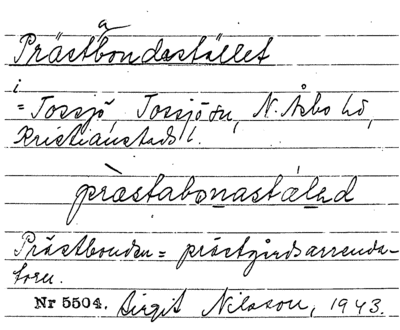 Prästabondestället
i
= Tossjö, Tossjö sn, N. Åsbo hd,
Kristianstads l.
pràstabonastálad
Prästbonden = prästgårdsarrenda-
torn.
Nr 5504. Birgit Nilsson, 1943.